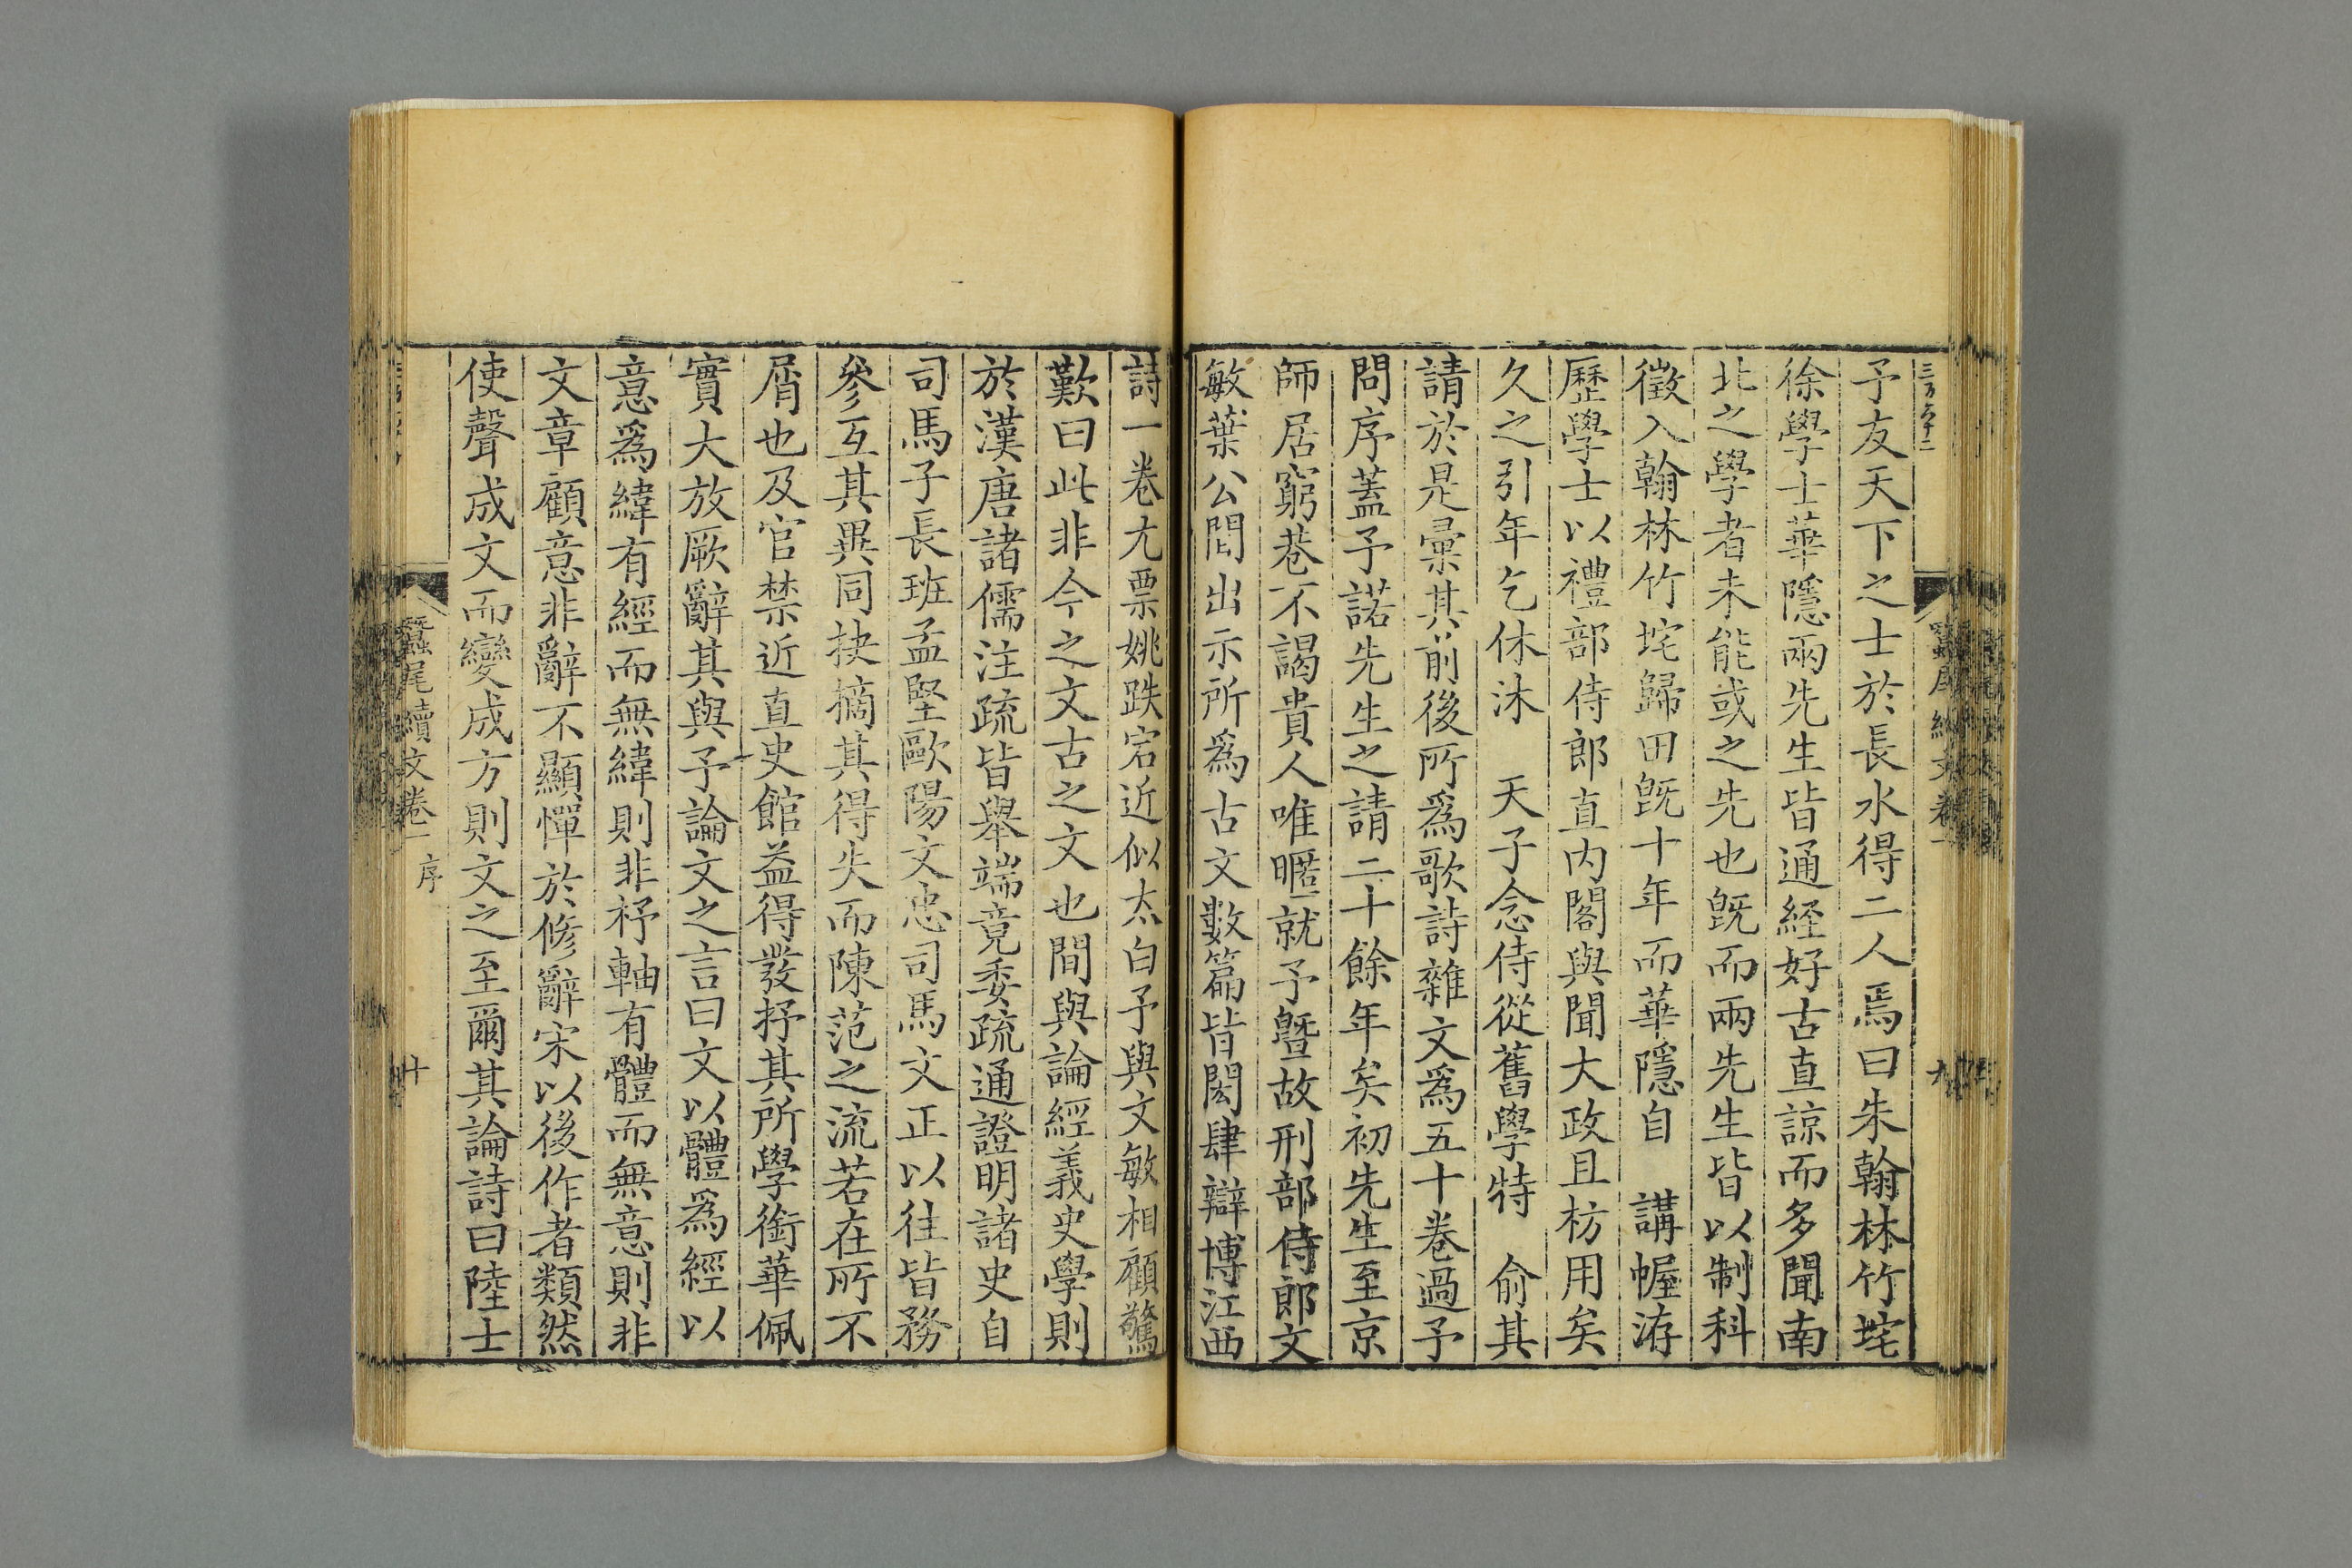 予友天下之士於長水得二人焉曰朱翰林竹垞
徐學士華隱兩先生皆通經好古直諒而多聞南
北之學者未能或之先也旣而兩先生皆以制科
徵入翰林竹垞歸田旣十年而華隱自 講幄洊
歷學士以禮部侍郎直内閣與聞大政且枋用矣
久之引年乞休沐 天子念侍從舊學特 俞其
請於是彙其前後所爲歌詩雜文爲五十卷過予
問序蓋予諾先生之請二十餘年矣初先生至京
師居窮巷不謁貴人唯暱就予曁故刑部侍郎文
敏葉公間出示所爲古文數篇皆閎肆辯博江西
詩一卷尤票姚跌宕近似太白予與文敏相顧驚
歎曰此非今之文古之文也間與論經義史學則
於漢唐諸儒注疏皆舉端竟委疏通證明諸史自
司馬子長班孟堅歐陽文忠司馬文正以往皆務
參互其異同抉摘其得失而陳范之流若在所不
屑也及官禁近直史館益得發抒其所學銜華佩
實大放厥辭其與予論文之言曰文以體爲經以
意爲緯有經而無緯則非杼軸有體而無意則非
文章顧意非辭不顯憚於修辭宋以後作者類然
使聲成文而變成方則文之至爾其論詩曰陸士
蠶尾續文卷一 序 十